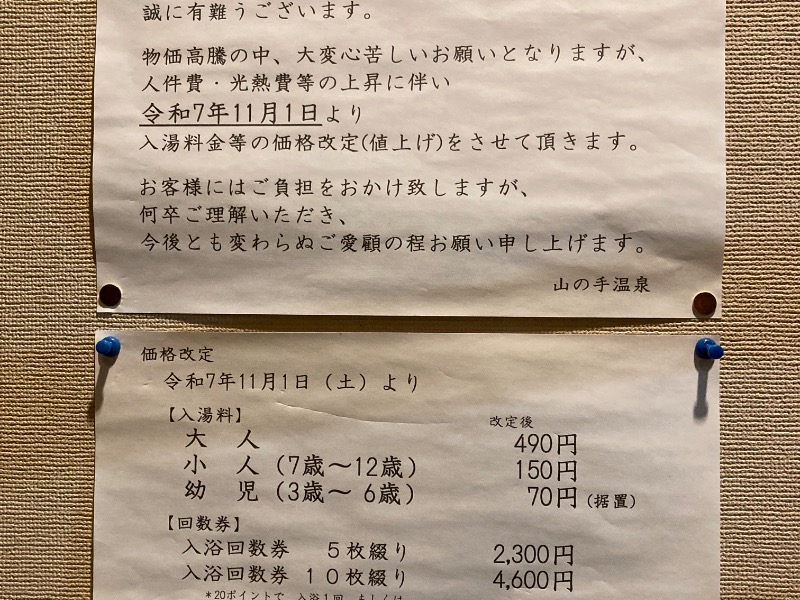 誠に有難うございます。
物価高騰の中、大変心苦しいお願いとなりますが、
人件費・光熱費等の上昇に伴い
令和7年11月1日より
入湯料金等の価格改定(値上げ)をさせて頂きます。
お客様にはご負担をおかけ致しますが、
何卒ご理解いただき、
今後とも変わらぬご愛顧の程お願い申し上げます。
山の手温泉
価格改定
令和7年11月1日（土）より
【入湯料】 改定後
大　人 490円
小　人（7歳～12歳） 150円
幼　児（3歳～ 6歳） 70円（据置）
【回数券】
入浴回数券　５枚綴り 2,300円
入浴回数券　１０枚綴り 4,600円
*20ポイントで、入浴1回、もしくは